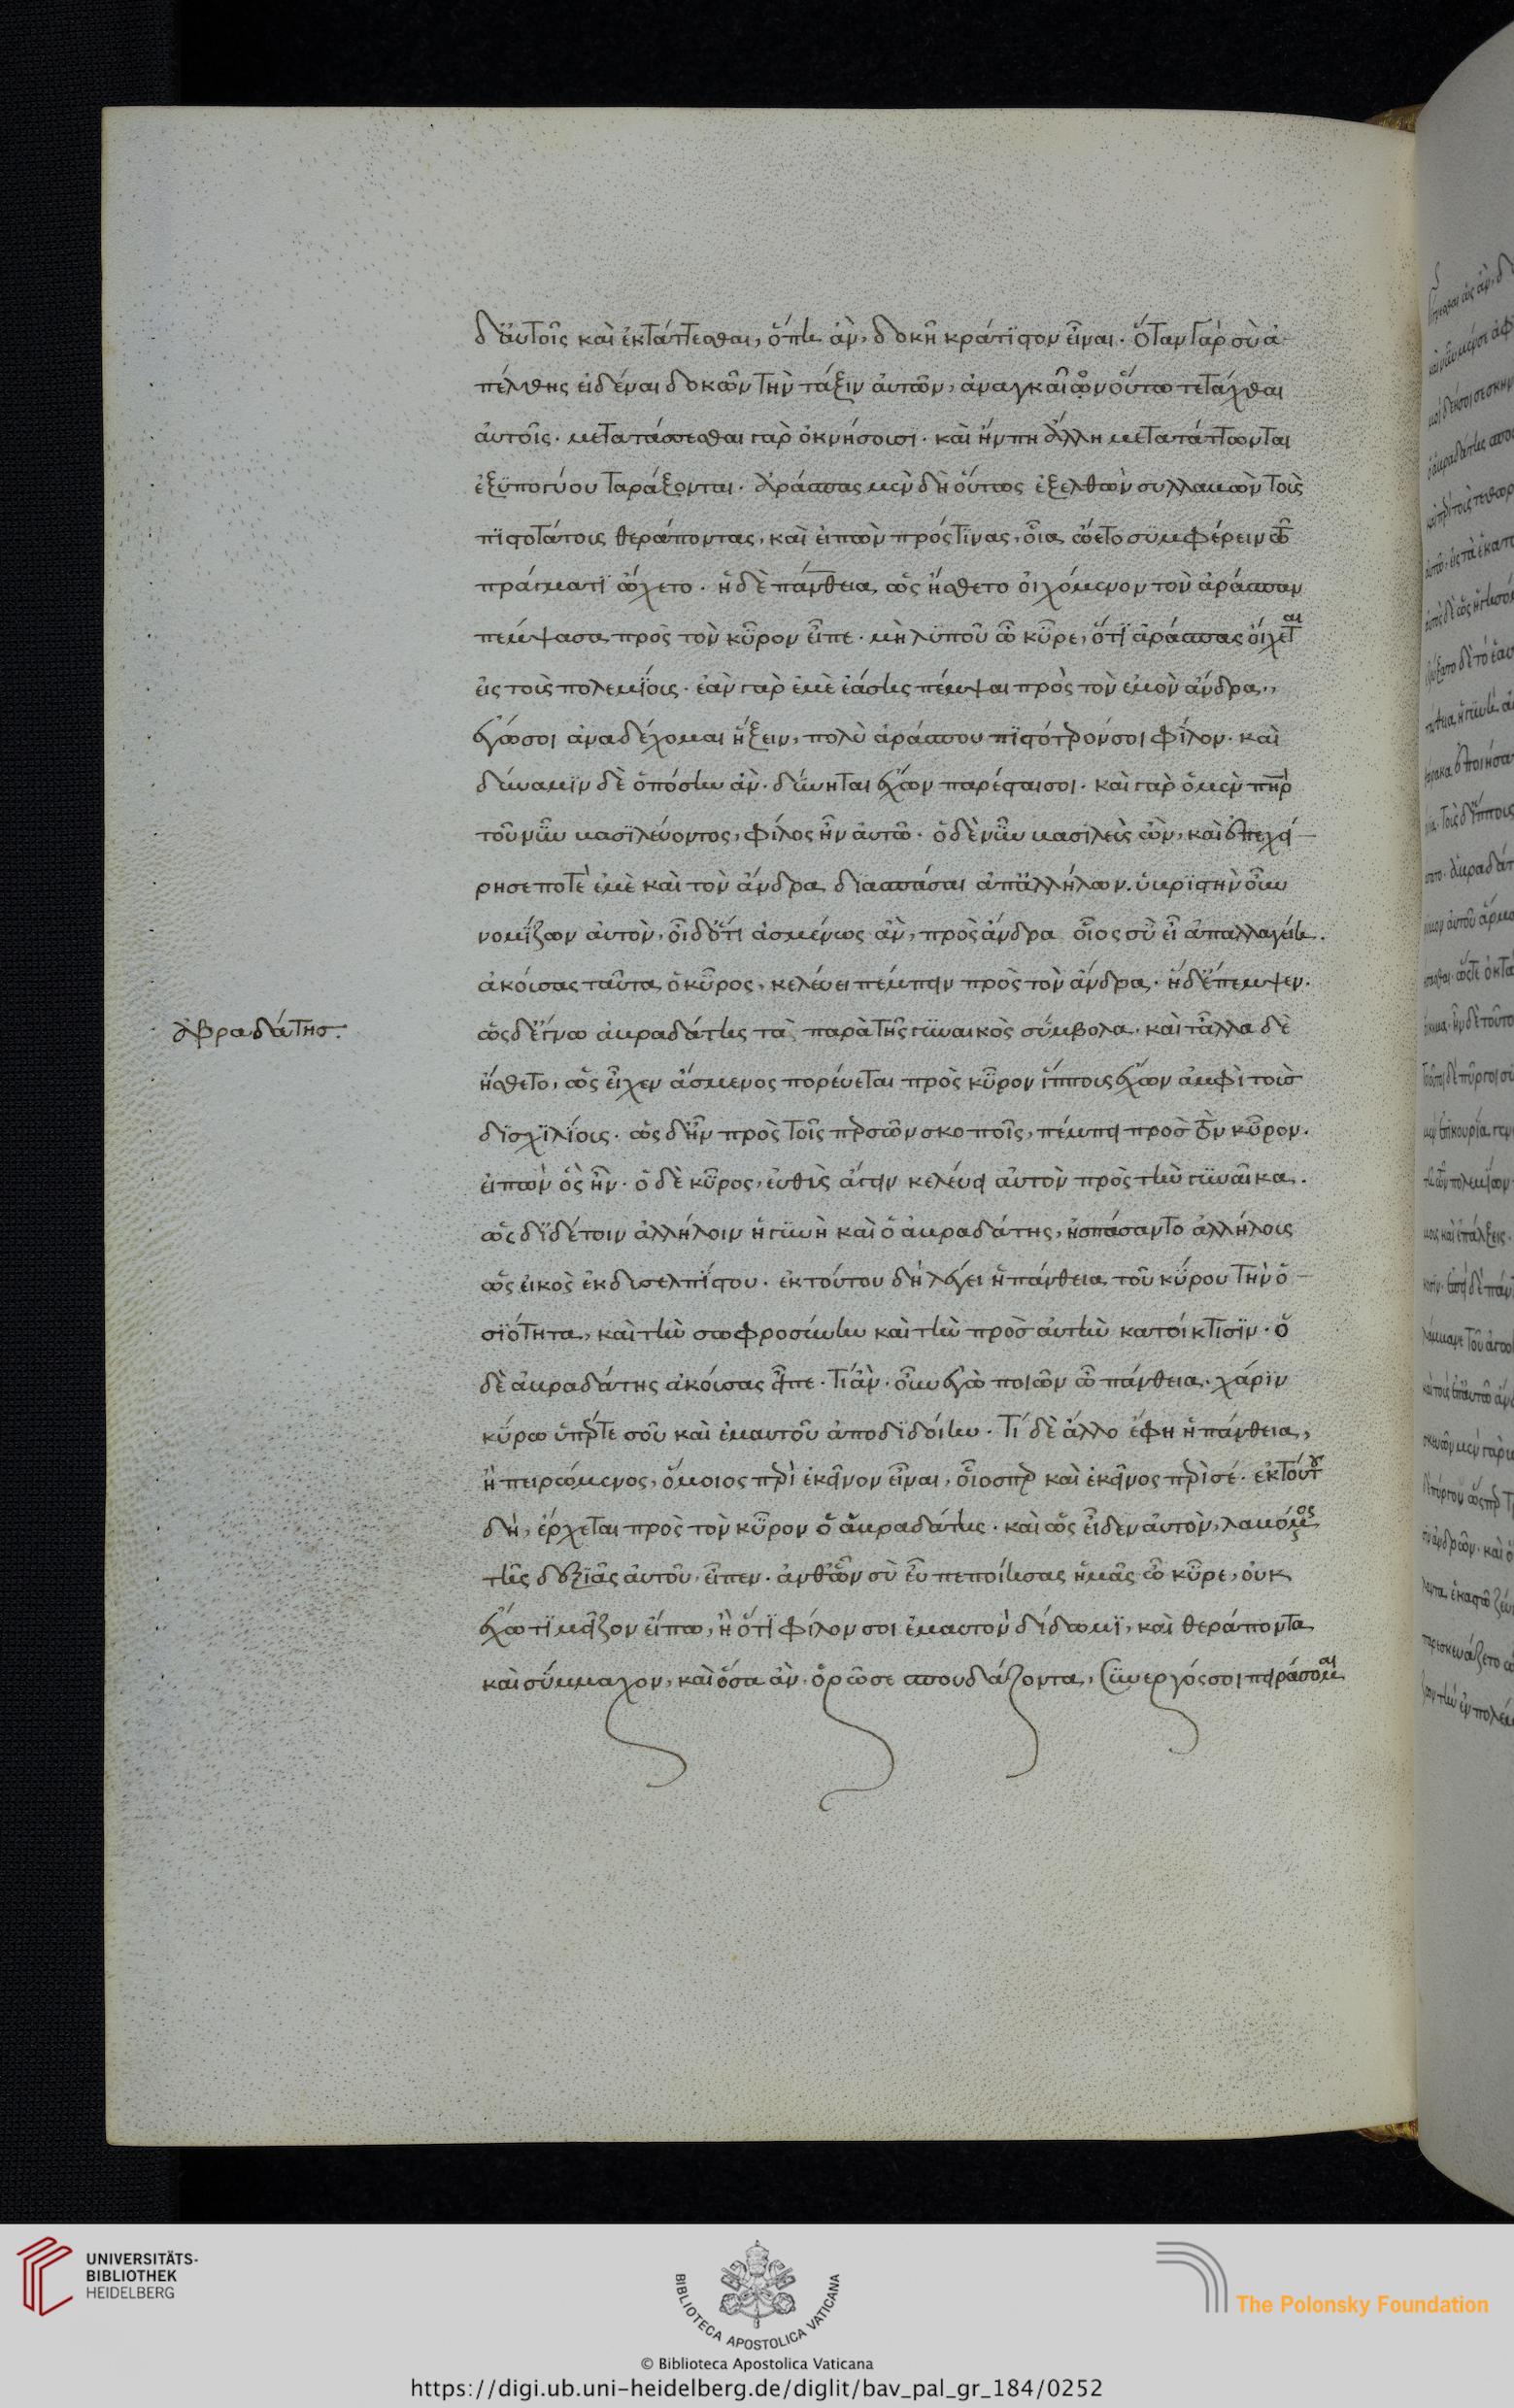 δ' αὐτοῖς καὶ ἐκτάττεσθαι, ὅπη ἂν, δοκῇ κράτιστον εἶναι. ὅταν γὰρ σὺ ἀ
πέλθης εἰδέναι δοκῶν τὴν τάξιν αὐτῶν, ἀναγκαῖον οὕτω τετάχθαι
αὐτοῖς. μετατάσσεσθαι γὰρ ὀκνήσουσι. καὶ ἤν πη ἄλλη μετατάττωνται
ἐξυπογύου ταράξονται. ἀράσπας μὲν δὴ οὕτως ἐξελθὼν συλλαβὼν τοὺς
πιστοτάτους θεράποντας, καὶ εἰπὼν πρός τινας, οἷα ὤετο συμφέρειν τῶ
πράγματι ὤχετο. ἡ δὲ πάνθεια ὡς ἤσθετο οἰχόμενον τὸν ἀράσπαν
πέμψασα πρὸς τὸν κῦρον εἶπε. μὴ λυποῦ ὦ κῦρε, ὅτι ἀράσπας οἴχεται
εἰς τοὺς πολεμίους. ἐὰν γὰρ ἐμὲ ἐάσης πέμψαι πρὸς τὸν ἐμὸν ἄνδρα,
ἐγώ σοι ἀναδέχομαι ἥξειν, πολὺ ἀράσπου πιστότερόν σοι φίλον. καὶ
δύναμιν δὲ ὁπόσην ἂν. δύνηται ἔχων παρέσται σοι. καὶ γὰρ ὁ μὲν πηρ
τοῦ νῦν βασιλεύοντος, φίλος ἦν αὐτῶ. ὁ δὲ νῦν βασιλεὺς ὢν, καὶ ἐπεχεί
ρησε ποτὲ ἐμὲ καὶ τὸν ἄνδρα διασπάσαι ἀπ' ἀλλήλων. ὑβριστὴν οὖν
νομίζων αὐτὸν, οἶδ' ὅτι ἀσμένως ἂν, πρὸς ἄνδρα οἷος σὺ εἶ ἀπαλλαγείη.
ἀκούσας ταῦτα ὁ κῦρος, κελεύει πέμπειν πρὸς τὸν ἄνδρα. ἡ δ' ἔπεμψεν.
Ἀβραδάτης.
ὡς δ' ἔγνω ἀβραδάτης τὰ παρὰ τῆς γυναικὸς σύμβολα. καὶ τἆλλα δὲ
ἤσθετο, ὡς εἶχεν ἄσμενος πορεύεται πρὸς κῦρον ἵππους ἔχων ἀμφὶ τοὺς
δισχιλίους. ὡς δ' ἦν πρὸς τοῖς περσῶν σκοποῖς, πέμπει πρὸς τὸν κῦρον.
εἰπὼν ὃς ἦν. ὁ δὲ κῦρος, εὐθὺς ἄγειν κελεύει αὐτὸν πρὸς τὴν γυναῖκα.
ὡς δ' ἰδέτοιν ἀλλήλοιν ἡ γυνὴ καὶ ὁ ἀβραδάτης, ἠσπάσαντο ἀλλήλους
ὡς εἰκὸς ἐκ δυσελπίστου. ἐκ τούτου δὴ λέγει ἡ πάνθεια τοῦ κύρου τὴν ὁ
σιότητα, καὶ τὴν σωφροσύνην καὶ τὴν πρὸς αὐτὴν κατοίκτισιν. ὁ
δὲ ἀβραδάτης ἀκούσας εἶπε. τί ἂν. οὖν ἐγὼ ποιῶν ὦ πάνθεια. χάριν
κύρω ὑπέρ τε σοῦ καὶ ἐμαυτοῦ ἀποδιδοίην. τί δὲ ἄλλο ἔφη ἡ πάνθεια,
ἢ πειρώμενος, ὅμοιος περὶ ἐκεῖνον εἶναι, οἷος περ καὶ ἐκεῖνος περὶ σέ. ἐκ τούτου
δὴ, ἔρχεται πρὸς τὸν κῦρον ὁ ἀβραδάτης. καὶ ὡς εἶδεν αὐτὸν, λαβόμενος
τῆς δεξιᾶς αὐτοῦ, εἶπεν. ἀνθ' ὧν σὺ εὖ πεποίηκας ἡμᾶς ὦ κῦρε, οὐκ
ἔχω τι μεῖζον εἴπω, ἢ ὅτι φίλον σοι ἐμαυτὸν δίδωμι, καὶ θεράποντα
καὶ σύμμαχον, καὶ ὅσα ἂν. ὁρῶ σε σπουδάζοντα, συνεργός σοι πειράσομαι
UNIVERSITÄTS-
BIBLIOTHEK
HEIDELBERG
BIBLIOTECA APOSTOLICA VATICANA
The Polonsky Foundation
© Biblioteca Apostolica Vaticana
https://digi.ub.uni-heidelberg.de/diglit/bav_pal_gr_184/0252